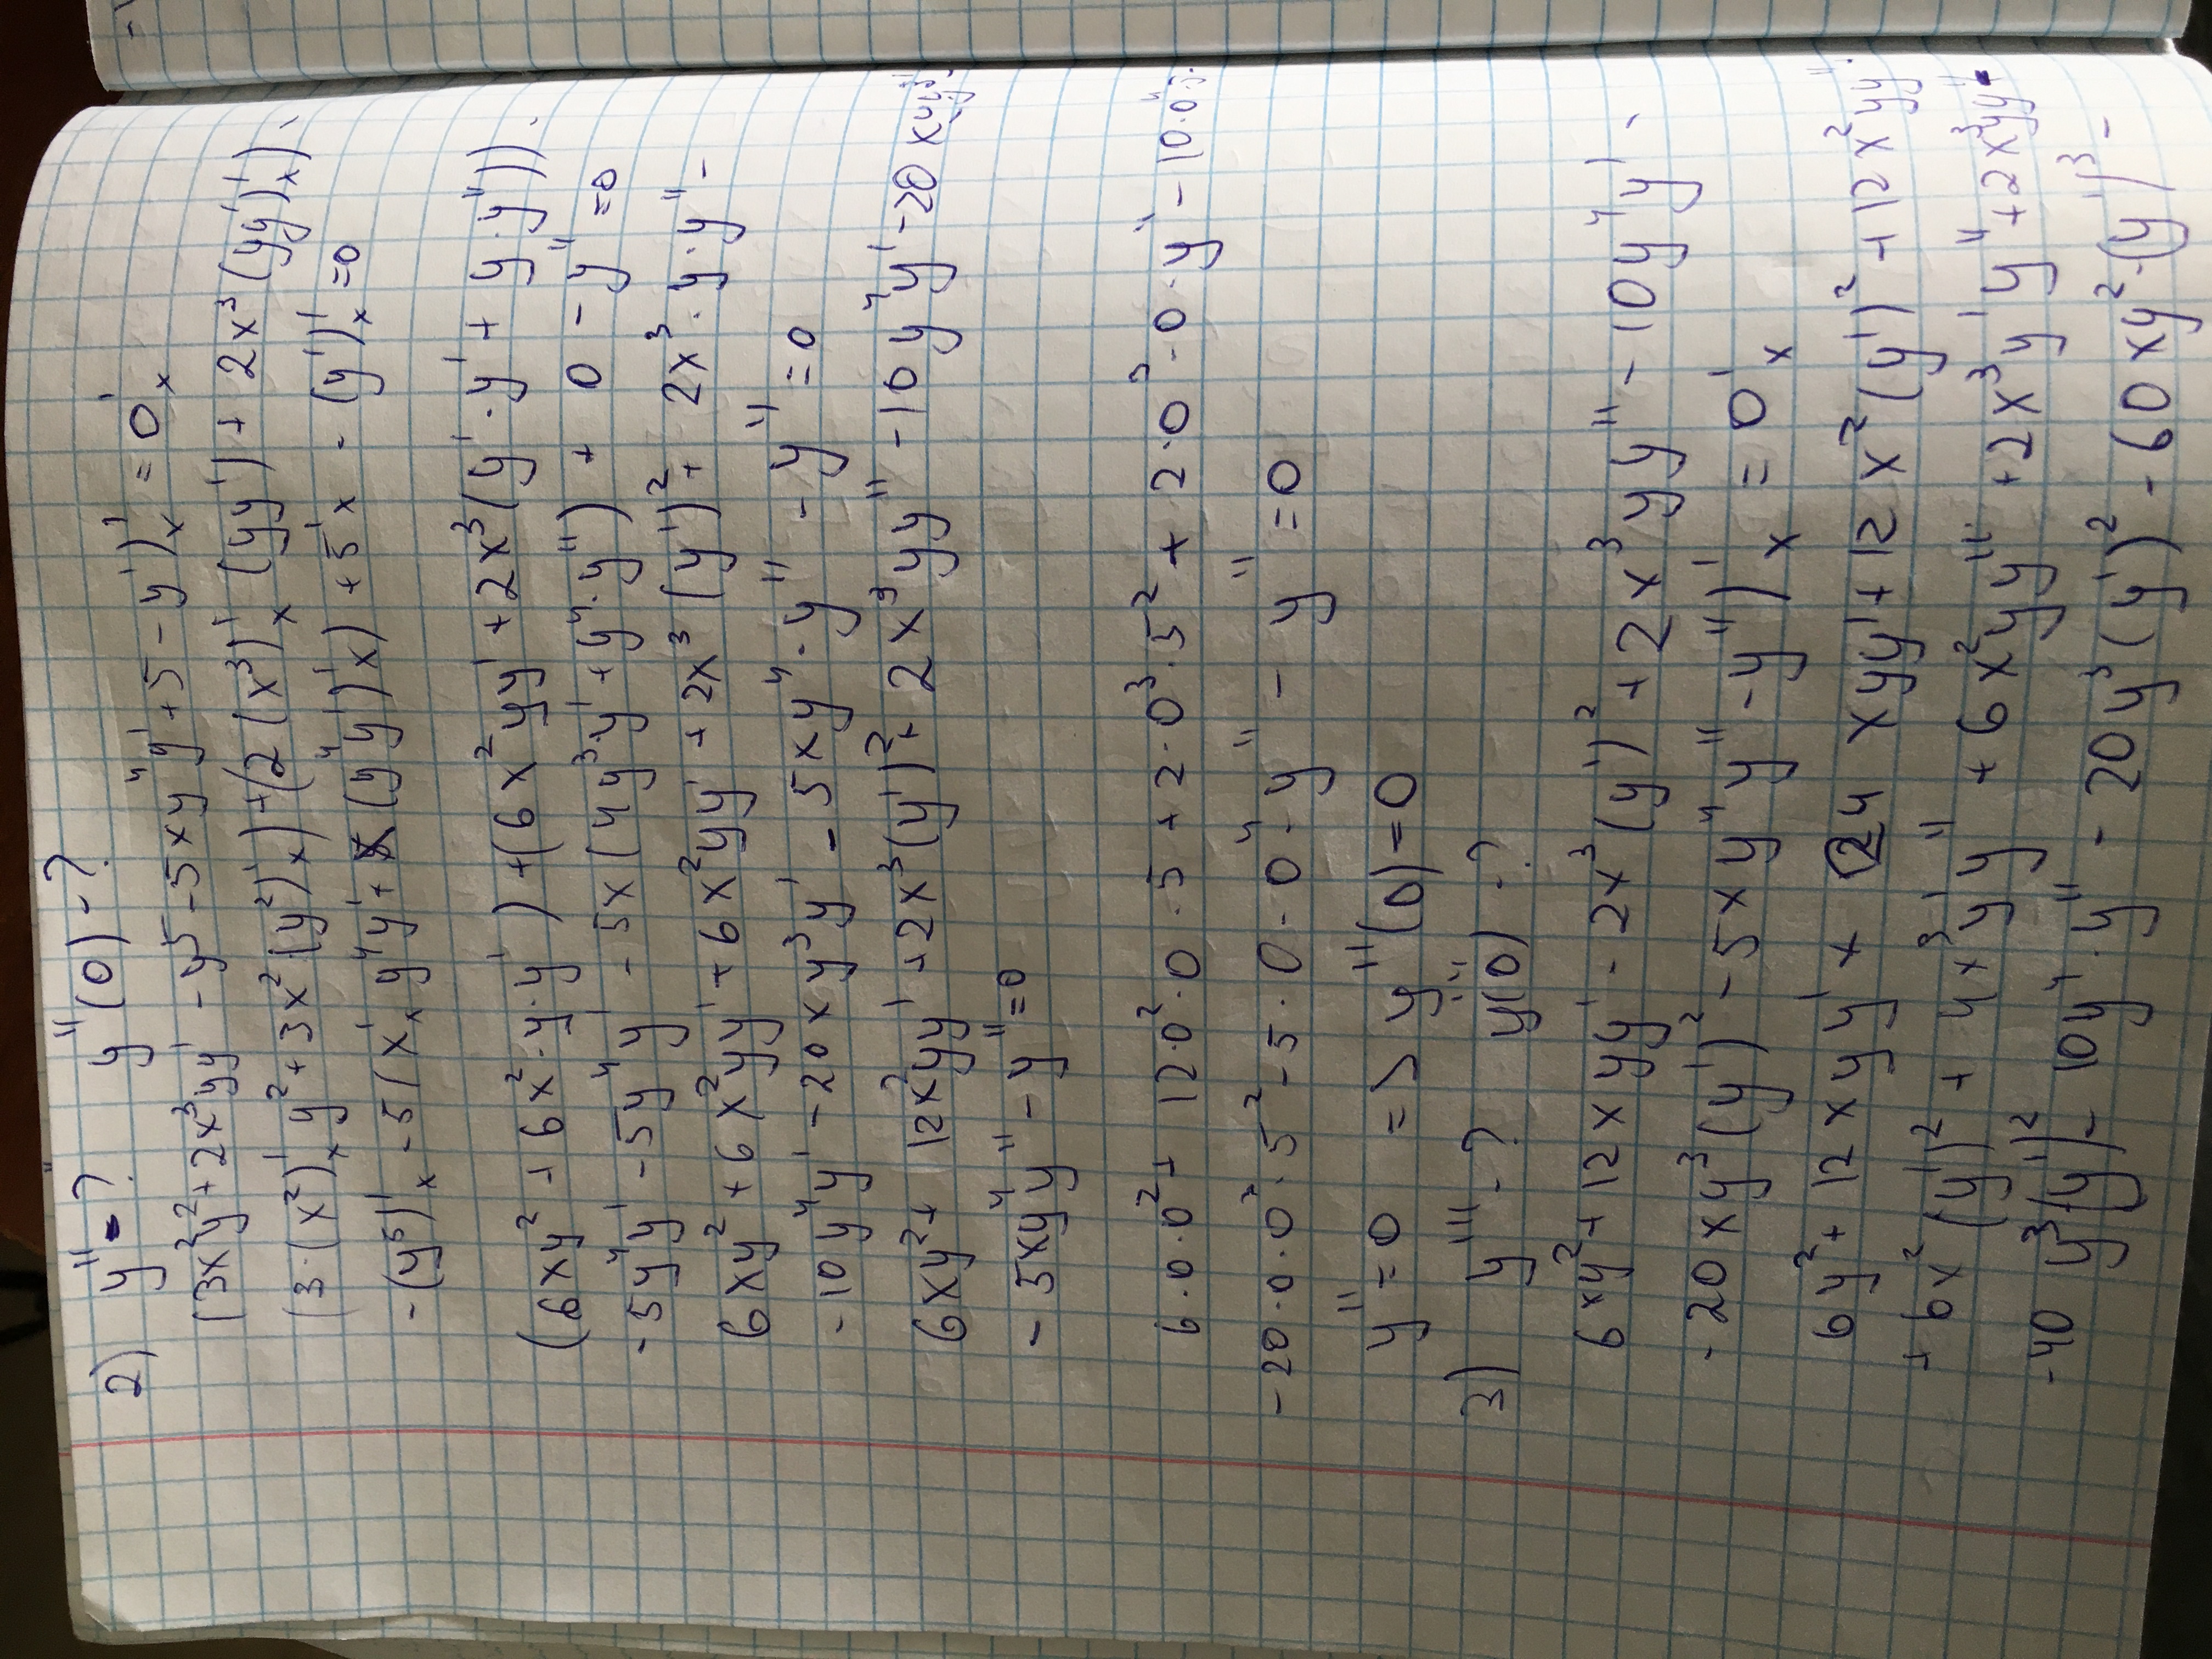 2) y'' - ? y''(0) - ?
(3x²y² + 2x³yy' - y⁵ - 5xy⁴y' + 5 - y')'ₓ = 0'ₓ
(3·(x²)'ₓ y² + 3x²(y²)'ₓ) + (2(x³)'ₓ (yy') + 2x³(yy')'ₓ) -
- (y⁵)'ₓ - 5(x'ₓ y⁴y' + x(y⁴y')'ₓ) + 5'ₓ - (y')'ₓ = 0
(6xy² + 6x²·y·y') + (6x²yy' + 2x³(y'·y' + y·y'')) -
- 5y⁴y' - 5y⁴y' - 5x(4y³·y' + y⁴·y'') + 0 - y'' = 0
6xy² + 6x²yy' + 6x²yy' + 2x³(y')² + 2x³·y·y'' -
- 10y⁴y' - 20xy³y' - 5xy⁴·y'' - y'' = 0
6xy² + 12x²yy' + 2x³(y')² + 2x³yy'' - 10y⁴y' - 20
- 5xy⁴y'' - y'' = 0
6·0·0² + 12·0²·0·5 + 2·0³·5² + 2·0³·0·y'' - 10·0⁴·5
- 20·0·0³·5² - 5·0·0⁴·y'' - y'' = 0
y'' = 0 => y''(0) = 0
3) y''' - ? y'''(0) - ?
6xy² + 12xyy' - 2x³(y')² + 2x³yy'' - 10y⁴y' -
- 20xy³(y')² - 5xy⁴y'' - y'')'ₓ = 0'ₓ
6y² + 12xyy' + 24xyy' + 12x²(y')² + 12x²yy''
+ 6x²(y')² + 4x³y'y'' + 6x²yy'' + 2x³y'y'' + 2x³yy'''
- 40y³(y')² - 10y⁴·y'' - 20y³(y')² - 60xy²·(y')³ -